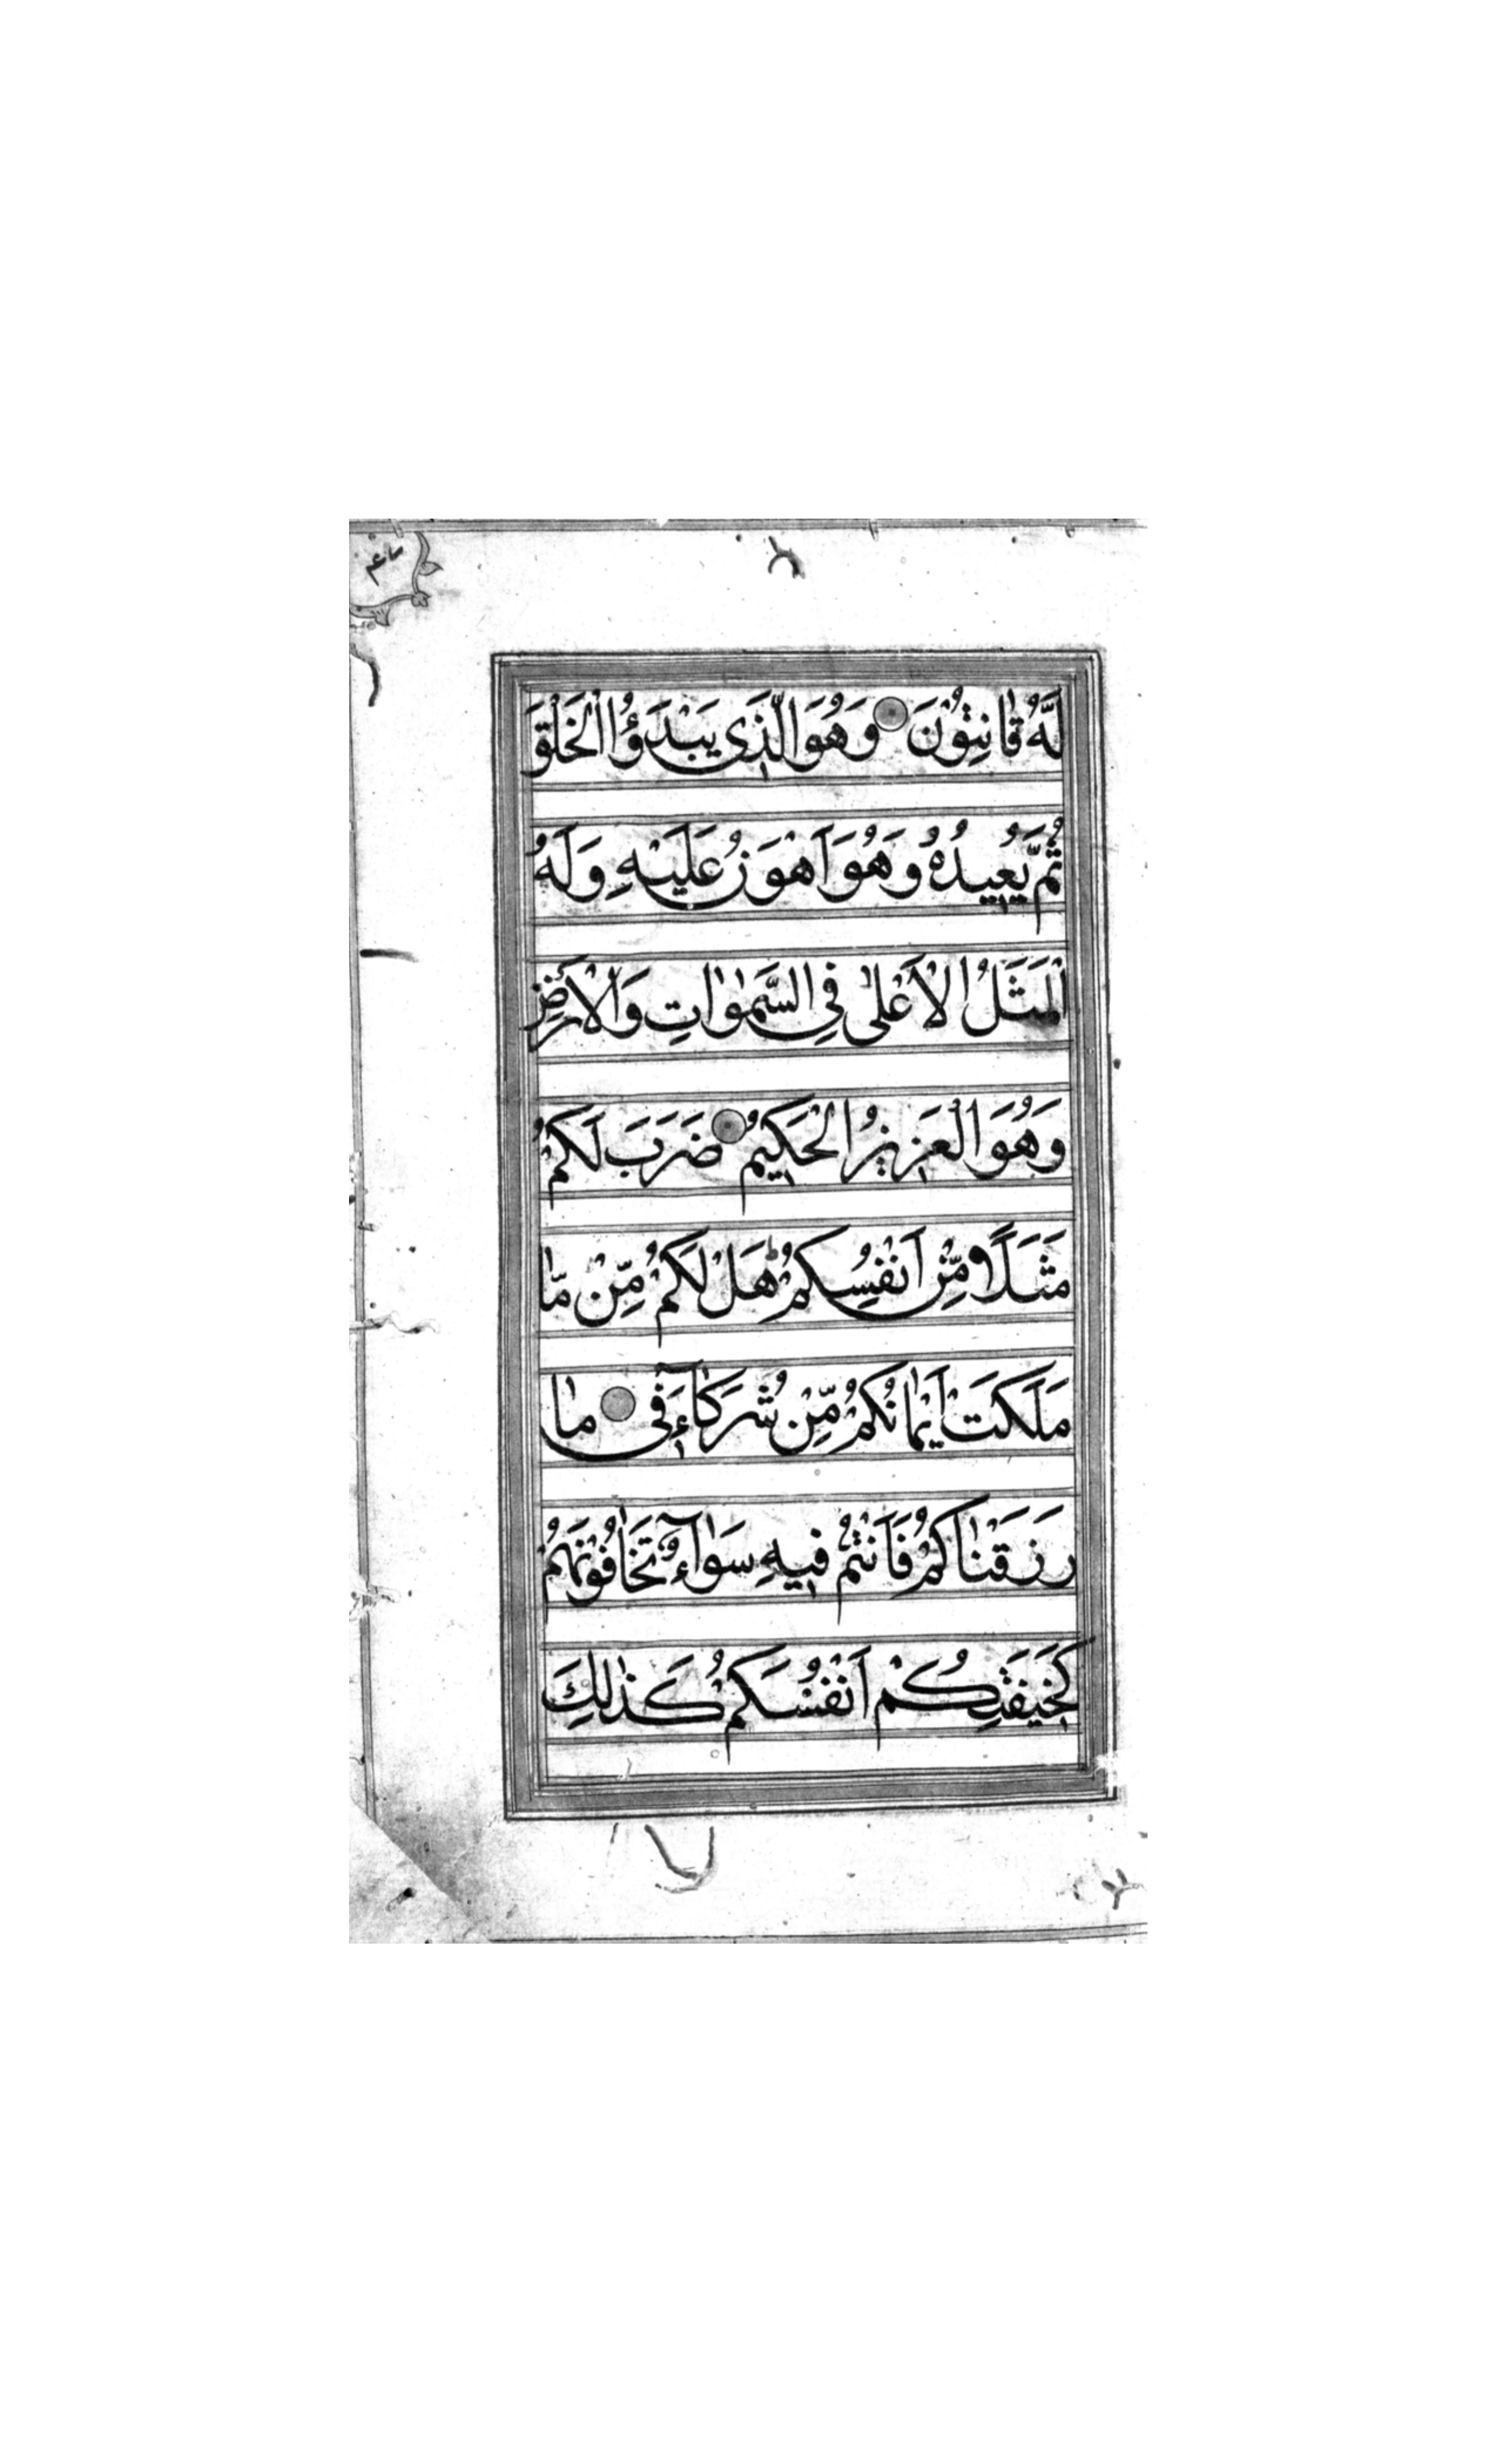 لَّهُ قَانِتُوْنَ وَهُوَ الَّذِی یَبْدَؤُا الْخَلْقَ
ثُمَّ یُعِیدُهُ وَهُوَ اَهْوَنُ عَلَیْهِ وَلَهُ
الْمَثَلُ الْاَعْلٰى فِی السَّمٰوٰاتِ وَالْاَرْضِ
وَهُوَ الْعَزِیزُ الْحَكِیمُ ضَرَبَ لَكُمْ
مَثَلًا مِّنْ اَنْفُسِكُمْ هَلْ لَكُمْ مِّنْ مّٰا
مَلَكَتْ اَیْمٰانُكُمْ مِّنْ شُرَكٰاءَ فِی مٰا
رَزَقْنٰاكُمْ فَاَنْتُمْ فِیهِ سَوٰآءٌ تَخٰافُوْنَهُمْ
كَخِیفَتِكُمْ اَنْفُسَكُمْ كَذٰلِكَ